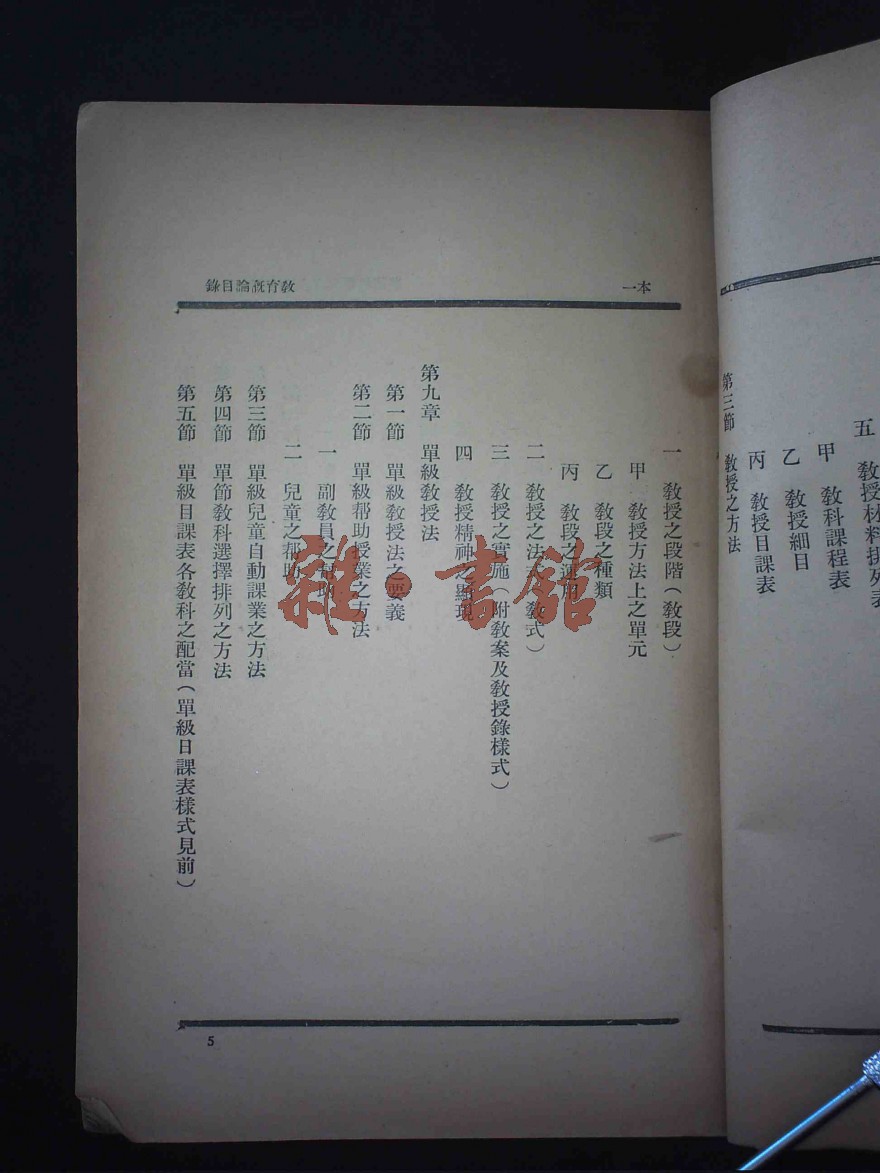 五 教授材料排列表
甲 教科課程表
乙 教授細目
丙 教授目課表
第三節 教授之方法
本一
教育概論目錄
一 教授之段階（教段）
甲 教授方法上之單元
乙 教段之種類
丙 教段之運用
二 教授之法式（教式）
三 教授之實施（附教案及教授錄樣式）
四 教授精神之顯現
第九章 單級教授法
第一節 單級教授法之要義
第二節 單級帮助授業之方法
一 副教員之帮助
二 兒童之帮助
第三節 單級兒童自動課業之方法
第四節 單節教科選擇排列之方法
第五節 單級目課表各教科之配當（單級日課表樣式見前）
5
雜·書館